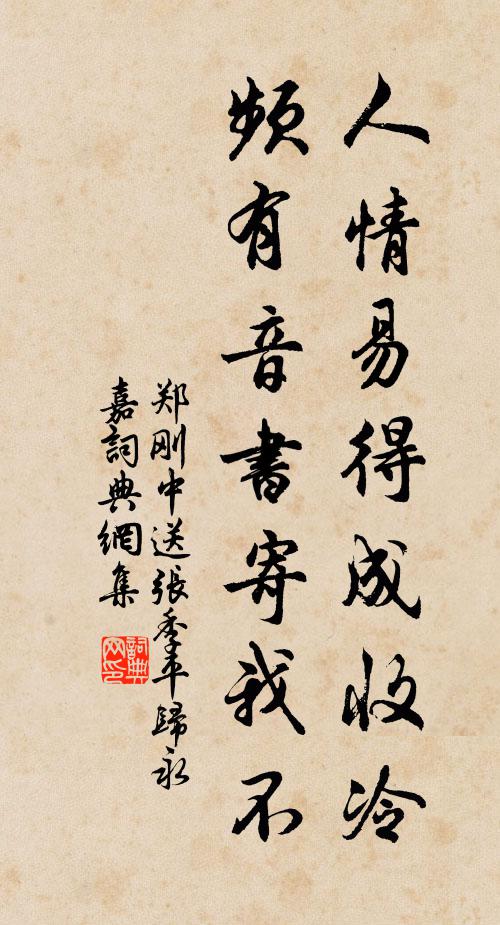 人情易得成收冷
頻有音書寄我不
郑刚中送張季平歸永
嘉詞典網集
詞典网印